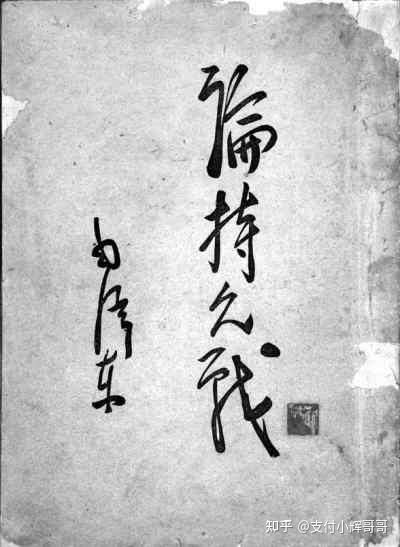 論持久戰
毛澤东
知乎 @支付小辉哥哥